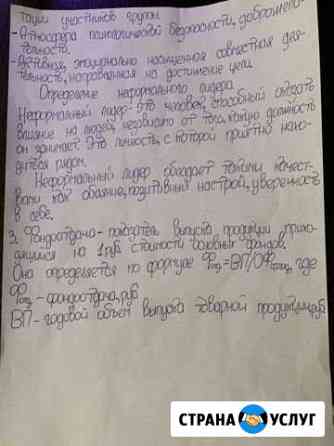 тации участников группы.
- Атмосфера психологической безопасности, доброжела-
тельность.
- Активная, эмоционально насыщенная совместная дея-
тельность, направленная на достижение цели.
Определение неформального лидера.
Неформальный лидер - это человек, способный оказать
влияние на людей, независимо от того, какую должность
он занимает. Это личность, с которой приятно нахо-
диться рядом.
Неформальный лидер обладает такими качест-
вами как обаяние, позитивный настрой, уверенность
в себе.
3. Фондоотдача - показатель выпуска продукции прихо-
дящийся на 1 руб стоимости основных фондов.
Она определяется по формуле Фотд = ВП/ОФ где
Фотд - фондоотдача, руб
ВП - годовой объем выпуска товарной продукции, руб
СТРАНА УСЛУГ